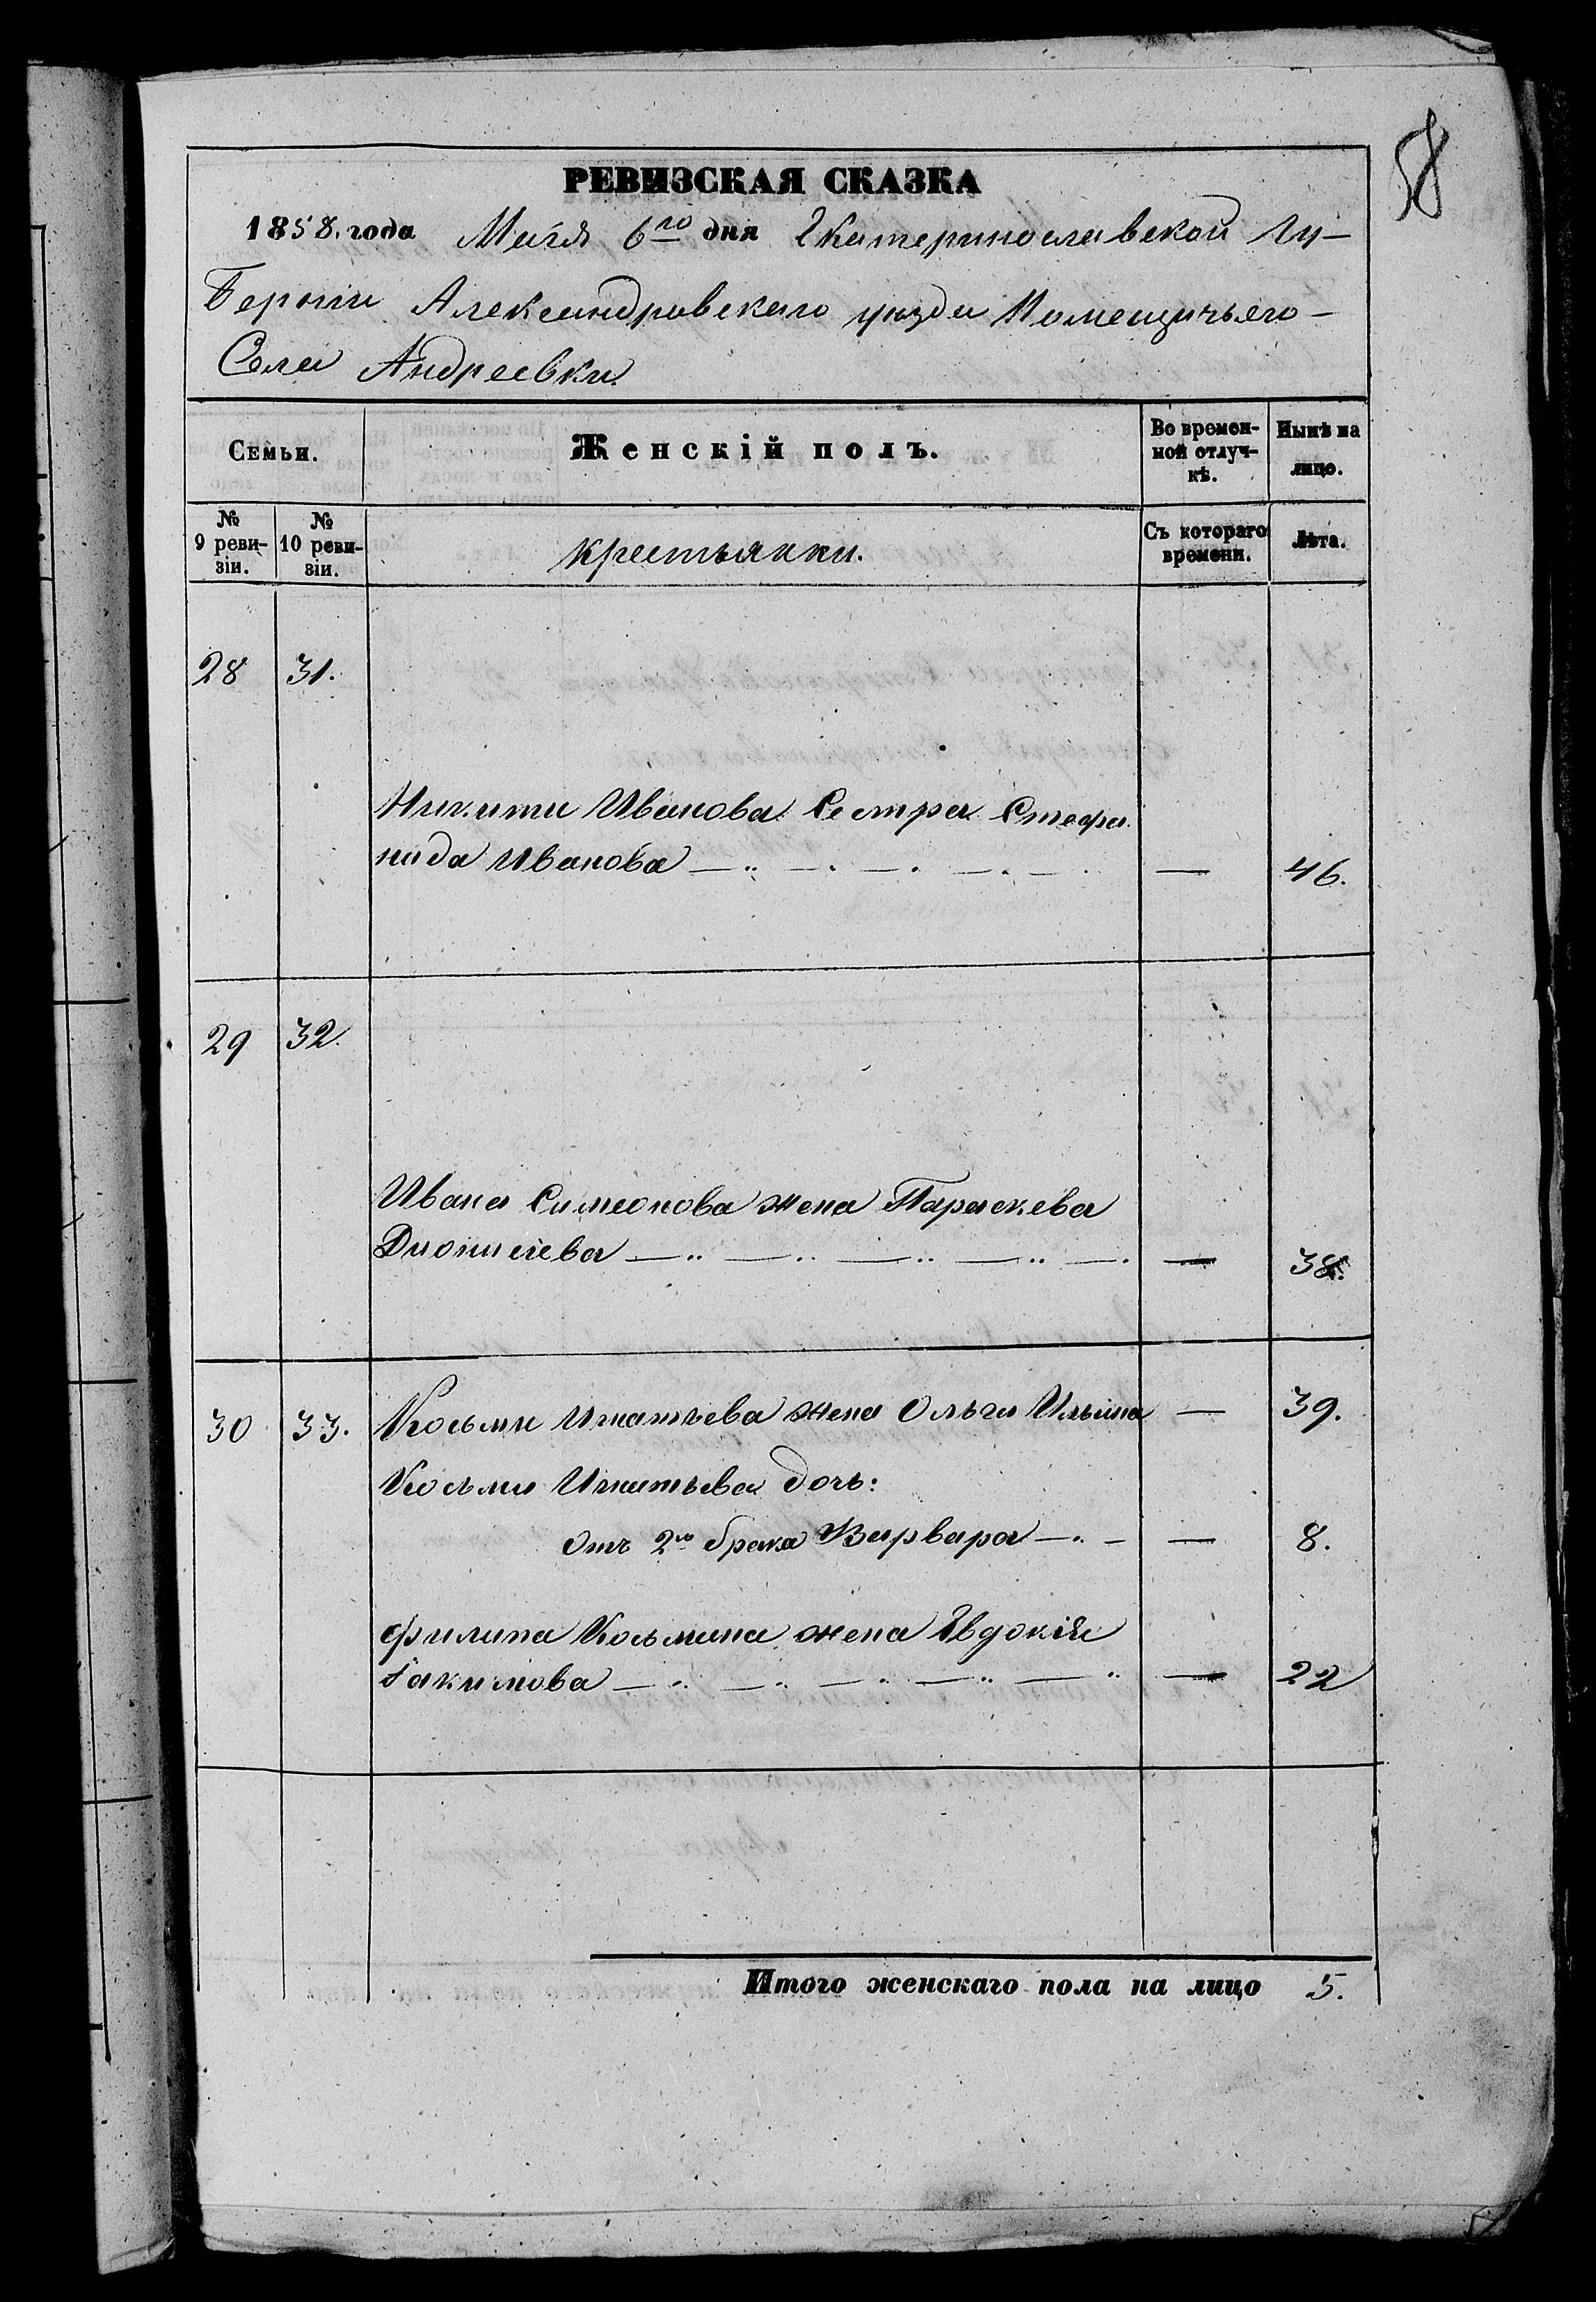 58
РЕВИЗСКАЯ СКАЗКА
1858. года Маія 6го дня Екатеринославской Гу-
берніи Александровскаго уѣзда Помещичьяго
Села Андреевки.
Семьи. Женскій полъ. Во времен-ной отлуч-кѣ. Нынѣ на лицо.
№ 9 реви-зіи. № 10 реви-зіи. крестьянки. Съ котораго времени. Лѣта.
28 31.
Никиты Иванова Сестра Стефа
нида Иванова — 46.
29 32.
Ивана Симеонова жена Параскева
Дионисіева — 38.
30 33. Косьмы Игнатьева жена Ольга Ильина — 39.
Косьмы Игнатьева дочь:
отъ 2го брака Варвара — 8.
Филипа Косьмина жена Евдокія
Іакимова — 22
Итого женскаго пола на лицо 5.